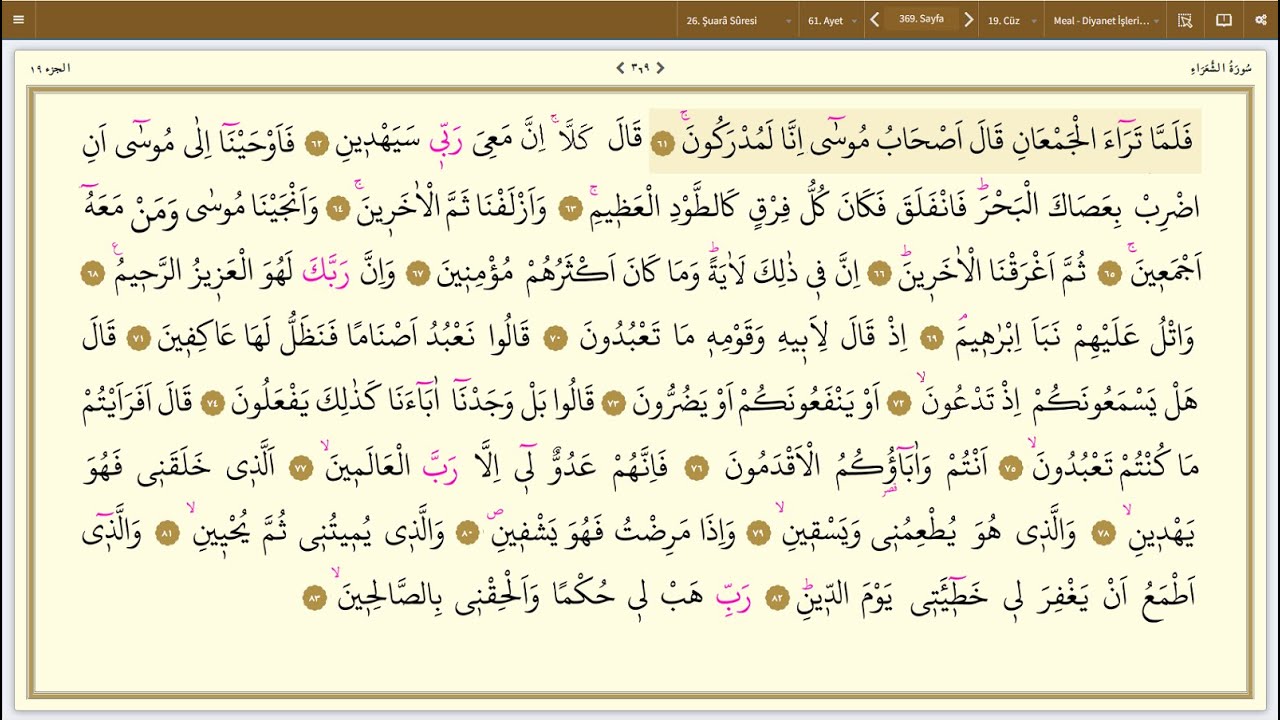 26. Şuarâ Sûresi 61. Ayet 369. Sayfa 19. Cüz Meal - Diyanet İşleri...
سُورَةُ الشُّعَرَاءِ ٣٦٩ الجزء ١٩
فَلَمَّا تَرَٓاءَ الْجَمْعَانِ قَالَ اَصْحَابُ مُوسٰٓى اِنَّا لَمُدْرَكُونَۚ ٦١ قَالَ كَلَّاۚ اِنَّ مَعِيَ رَبّ۪ي سَيَهْد۪ينِ ٦٢ فَاَوْحَيْنَٓا اِلٰى مُوسٰٓى اَنِ
اضْرِبْ بِعَصَاكَ الْبَحْرَۜ فَانْفَلَقَ فَكَانَ كُلُّ فِرْقٍ كَالطَّوْدِ الْعَظ۪يمِۚ ٦٣ وَاَزْلَفْنَا ثَمَّ الْاٰخَر۪ينَۚ ٦٤ وَاَنْجَيْنَا مُوسٰى وَمَنْ مَعَهُٓ
اَجْمَع۪ينَۚ ٦٥ ثُمَّ اَغْرَقْنَا الْاٰخَر۪ينَۜ ٦٦ اِنَّ ف۪ي ذٰلِكَ لَاٰيَةًۜ وَمَا كَانَ اَكْثَرُهُمْ مُؤْمِن۪ينَ ٦٧ وَاِنَّ رَبَّكَ لَهُوَ الْعَز۪يزُ الرَّح۪يمُ۟ ٦٨
وَاتْلُ عَلَيْهِمْ نَبَاَ اِبْرٰه۪يمَۢ ٦٩ اِذْ قَالَ لِاَب۪يهِ وَقَوْمِه۪ مَا تَعْبُدُونَ ٧٠ قَالُوا نَعْبُدُ اَصْنَامًا فَنَظَلُّ لَهَا عَاكِف۪ينَ ٧١ قَالَ
هَلْ يَسْمَعُونَكُمْ اِذْ تَدْعُونَۙ ٧٢ اَوْ يَنْفَعُونَكُمْ اَوْ يَضُرُّونَ ٧٣ قَالُوا بَلْ وَجَدْنَٓا اٰبَٓاءَنَا كَذٰلِكَ يَفْعَلُونَ ٧٤ قَالَ اَفَرَاَيْتُمْ
مَا كُنْتُمْ تَعْبُدُونَۙ ٧٥ اَنْتُمْ وَاٰبَٓاؤُ۬كُمُ الْاَقْدَمُونَ ٧٦ فَاِنَّهُمْ عَدُوٌّ ل۪ٓي اِلَّا رَبَّ الْعَالَم۪ينَۙ ٧٧ اَلَّذ۪ي خَلَقَن۪ي فَهُوَ
يَهْد۪ينِۙ ٧٨ وَالَّذ۪ي هُوَ يُطْعِمُن۪ي وَيَسْق۪ينِۙ ٧٩ وَاِذَا مَرِضْتُ فَهُوَ يَشْف۪ينِۖ ٨٠ وَالَّذ۪ي يُم۪يتُن۪ي ثُمَّ يُحْي۪ينِۙ ٨١ وَالَّذ۪ٓي
اَطْمَعُ اَنْ يَغْفِرَ ل۪ي خَط۪ٓيـَٔت۪ي يَوْمَ الدّ۪ينِۜ ٨٢ رَبِّ هَبْ ل۪ي حُكْمًا وَاَلْحِقْن۪ي بِالصَّالِح۪ينَۙ ٨٣